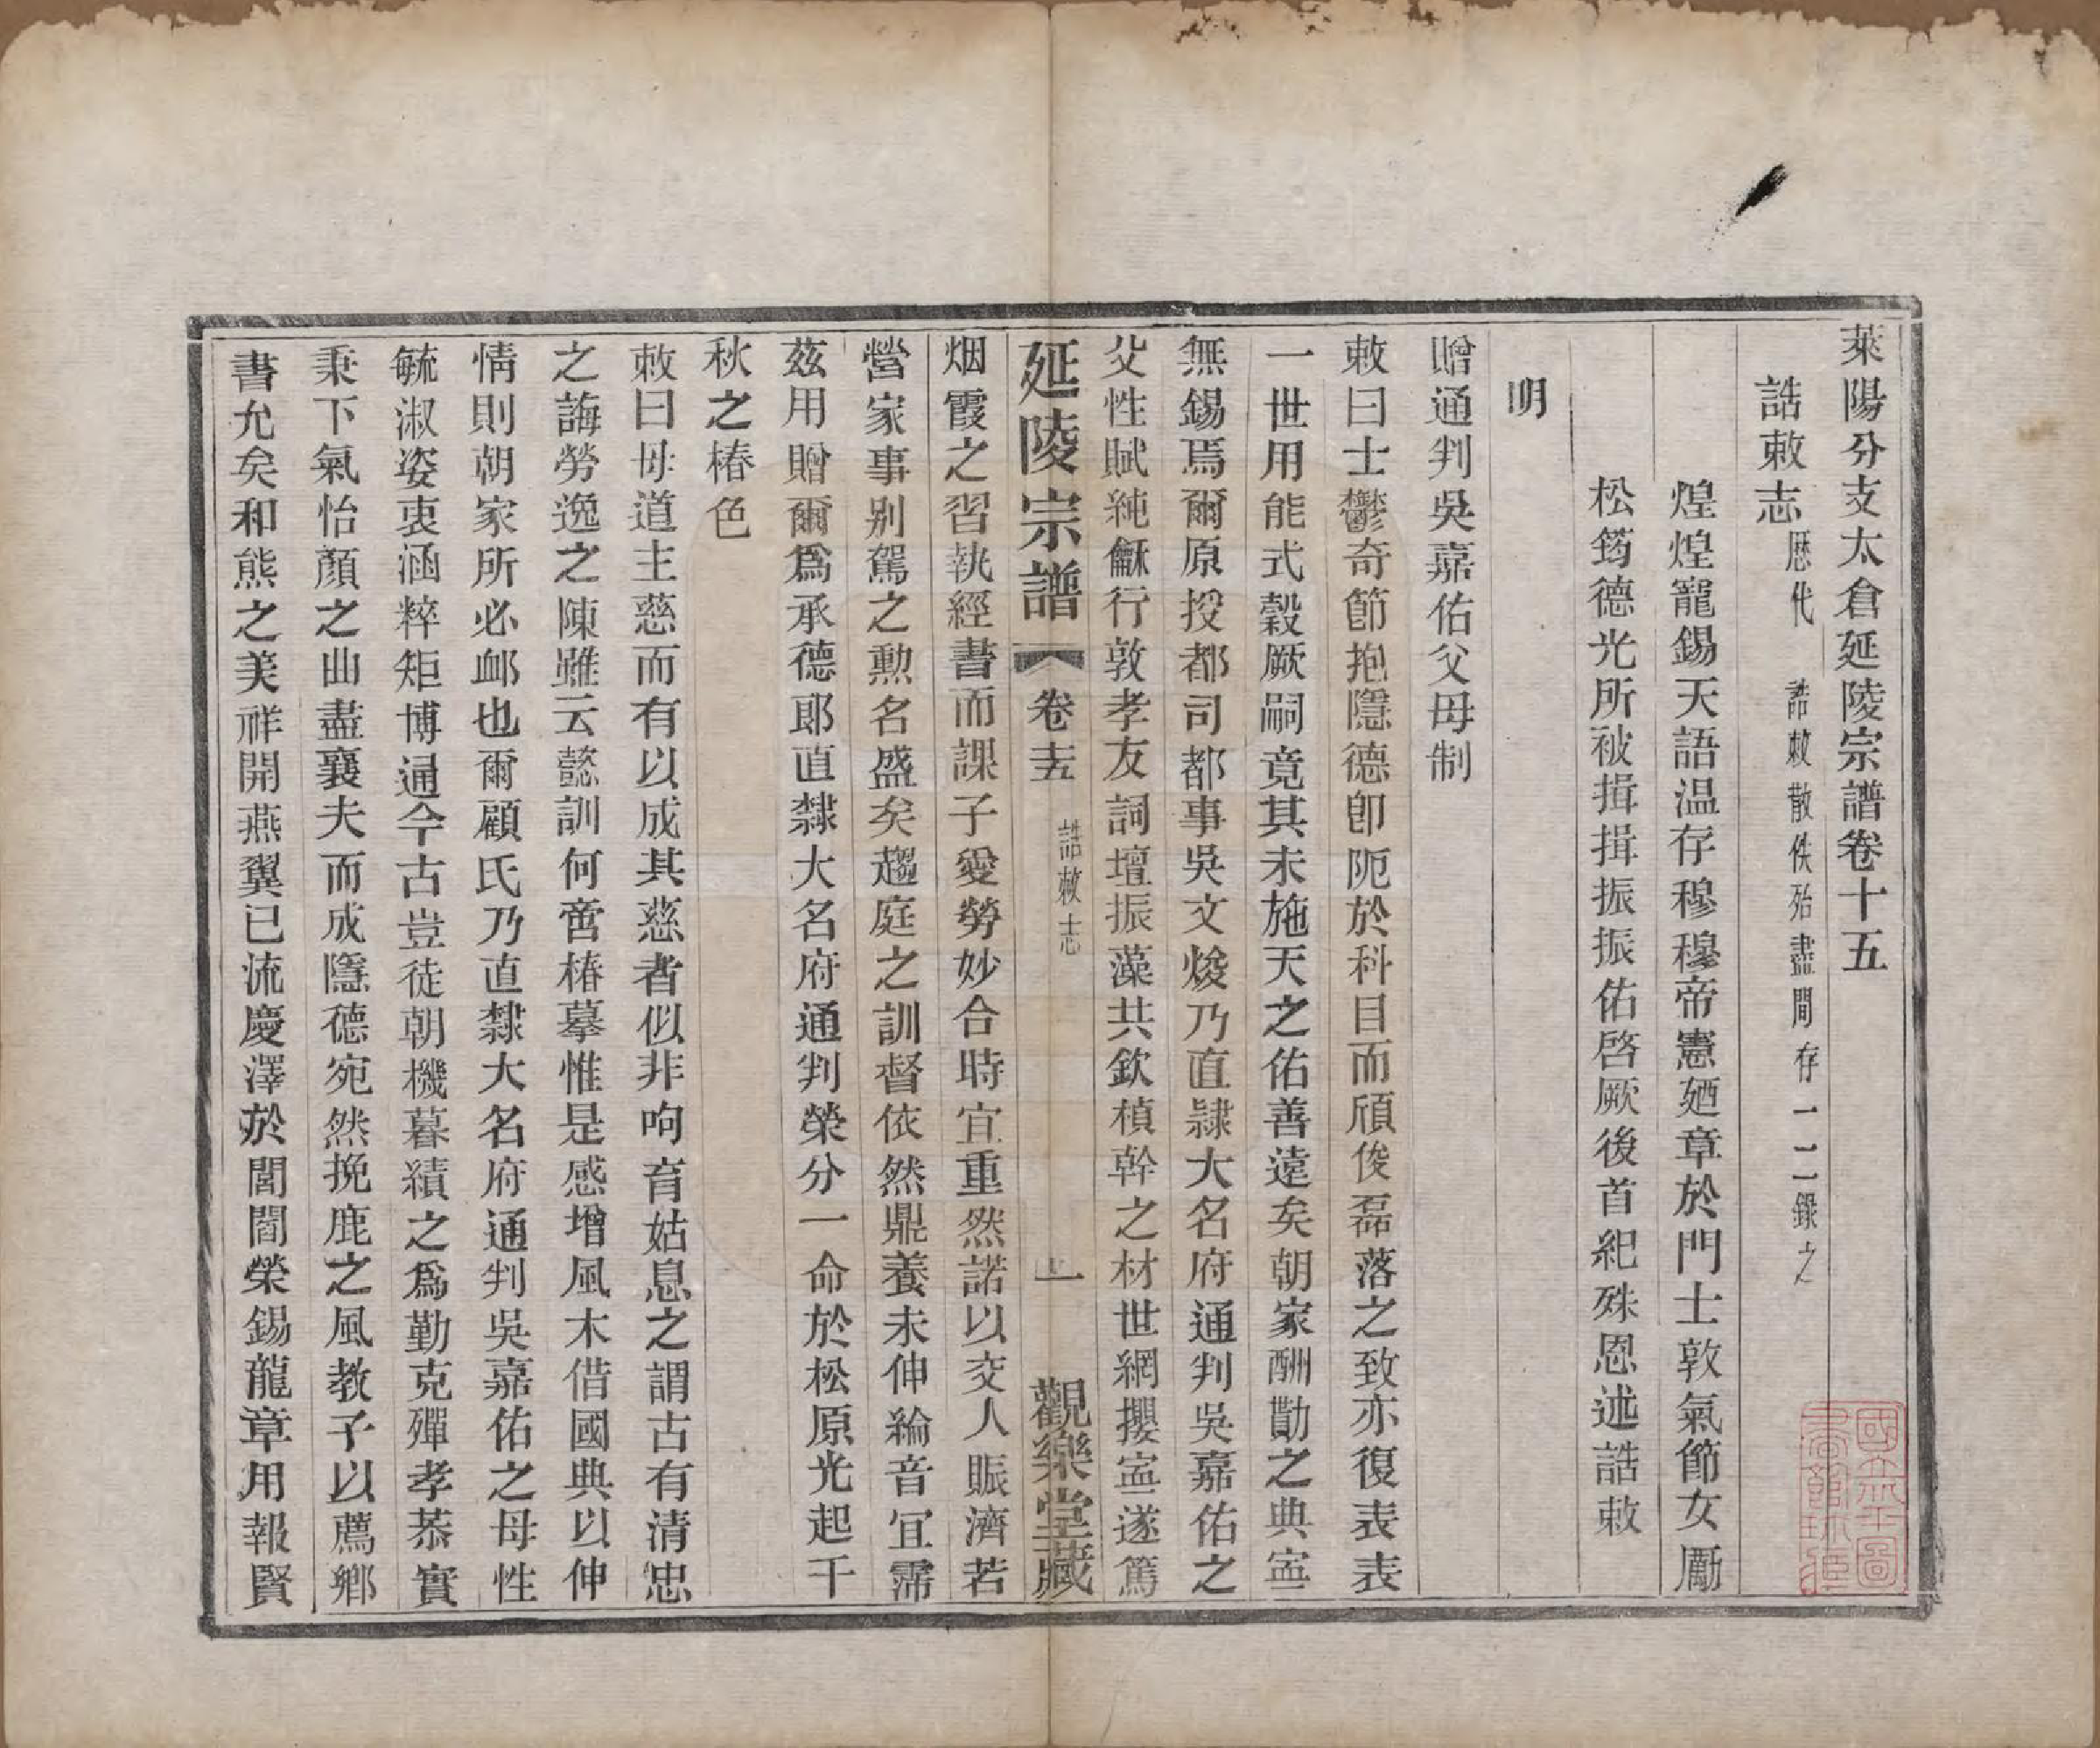 萊陽分支太倉延陵宗譜卷十五
誥敕志歷代誥敕散佚殆盡間存一二錄之
煌煌寵錫天語温存穆穆帝憲廼章於門士敦氣節女勵
松筠德光所被揖揖振振佑啓厥後首紀殊恩述誥敕
明
贈通判吳嘉佑父母制
敕曰士鬱奇節抱隱德卽阨於科目而頎俊磊落之致亦復表表
一世用能式穀厥嗣竟其未施天之佑善遠矣朝家酬勩之典寍
無錫焉爾原授都司都事吳文焌乃直隸大名府通判吳嘉佑之
父性賦純龢行敦孝友詞壇振藻共欽楨幹之材世網攖寍遂篤
延陵宗譜 卷十五 誥敕志 一 觀樂堂藏
烟霞之習執經書而課子愛勞妙合時宜重然諾以交人賑濟若
營家事別駕之勳名盛矣趨庭之訓督依然鼎養未伸綸音冝霈
茲用贈爾爲承德郎直隸大名府通判榮分一命於松原光起千
秋之椿色
敕曰母道主慈而有以成其慈者似非呴育姑息之謂古有清忠
之誨勞逸之陳雖云懿訓何啻椿摹惟是感增風木借國典以伸
情則朝家所必卹也爾顧氏乃直隸大名府通判吳嘉佑之母性
毓淑姿衷涵粹矩博通今古豈徒朝機暮績之爲勤克殫孝恭實
秉下氣怡顏之曲盡襄夫而成隱德宛然挽鹿之風教子以薦鄉
書允矣和熊之美祥開燕翼已流慶澤於閭閻榮錫龍章用報賢
國立北平圖
書館珍藏